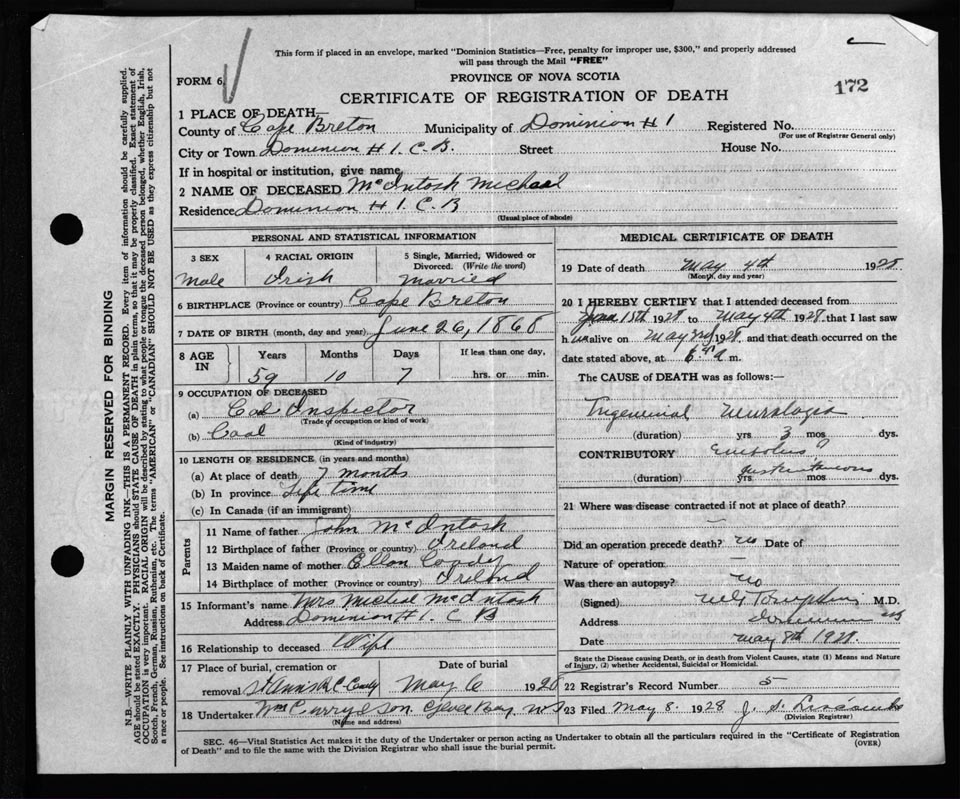 This form if placed in an envelope, marked "Dominion Statistics—Free, penalty for improper use, $300," and properly addressed
will pass through the Mail "FREE"
FORM 6.
PROVINCE OF NOVA SCOTIA
172
CERTIFICATE OF REGISTRATION OF DEATH
1 PLACE OF DEATH
County of Cape Breton Municipality of Dominion # 1 Registered No.
(For use of Registrar General only)
City or Town Dominion # 1. C. B. Street House No.
If in hospital or institution, give name
2 NAME OF DECEASED McIntosh Michael
Residence Dominion # 1. C. B
(Usual place of abode)
PERSONAL AND STATISTICAL INFORMATION
3 SEX 4 RACIAL ORIGIN 5 Single, Married, Widowed or
Divorced. (Write the word)
Male Irish Married
6 BIRTHPLACE (Province or country) Cape Breton
7 DATE OF BIRTH (month, day and year) June 26, 1868
8 AGE IN Years Months Days If less than one day,
59 10 7 hrs. or min.
9 OCCUPATION OF DECEASED
(a) Coal Inspector
(Trade of occupation or kind of work)
(b) Coal
(Kind of industry)
10 LENGTH OF RESIDENCE (in years and months)
(a) At place of death 7 months
(b) In province Life time
(c) In Canada (if an immigrant)
Parents
11 Name of father John McIntosh
12 Birthplace of father (Province or country) Ireland
13 Maiden name of mother Ellen Coady
14 Birthplace of mother (Province or country) Ireland
15 Informant's name Mrs Michel McIntosh
Address Dominion # 1. C B
16 Relationship to deceased Wife
17 Place of burial, cremation or Date of burial
removal St Anns R.C. May 6 1928
18 Undertaker Wm Curry & Son Glace Bay N S
(Name and address)
MEDICAL CERTIFICATE OF DEATH
19 Date of death May 4th 1928
(Month, day and year)
20 I HEREBY CERTIFY that I attended deceased from
15th 1928 to May 4th 1928 that I last saw
h im alive on May 3rd 1928 and that death occurred on the
date stated above, at 6 a m.
The CAUSE of DEATH was as follows:—
Trigeminal Neuralgia
(duration) yrs 3 mos dys.
CONTRIBUTORY Embolus ?
instantaneous
(duration) yrs. mos dys.
21 Where was disease contracted if not at place of death?
—
Did an operation precede death? no Date of
Nature of operation —
Was there an autopsy? no
(Signed) Tompkins M.D.
Address Dominion NS
Date May 8th 1928.
State the Disease causing Death, or in death from Violent Causes, state (1) Means and Nature
of Injury, (2) whether Accidental, Suicidal or Homicidal.
22 Registrar's Record Number 5
23 Filed May 8. 1928 J. S.
(Division Registrar)
SEC. 46—Vital Statistics Act makes it the duty of the Undertaker or person acting as Undertaker to obtain all the particulars required in the "Certificate of Registration
of Death" and to file the same with the Division Registrar who shall issue the burial permit. (OVER)
MARGIN RESERVED FOR BINDING
N.B.—WRITE PLAINLY WITH UNFADING INK—THIS IS A PERMANENT RECORD. Every item of information should be carefully supplied.
AGE should be stated EXACTLY. PHYSICIANS should STATE CAUSE OF DEATH in plain terms, so that it may be properly classified. Exact statement of
OCCUPATION is very important. RACIAL ORIGIN will be described by stating to what people or tongue the deceased person belonged, whether English, Irish,
Scotch, French, German, Russian, Ruthenian, etc. The terms "AMERICAN" or "CANADIAN" SHOULD NOT BE USED as they express citizenship but not
a race or people. See instructions on back of Certificate.